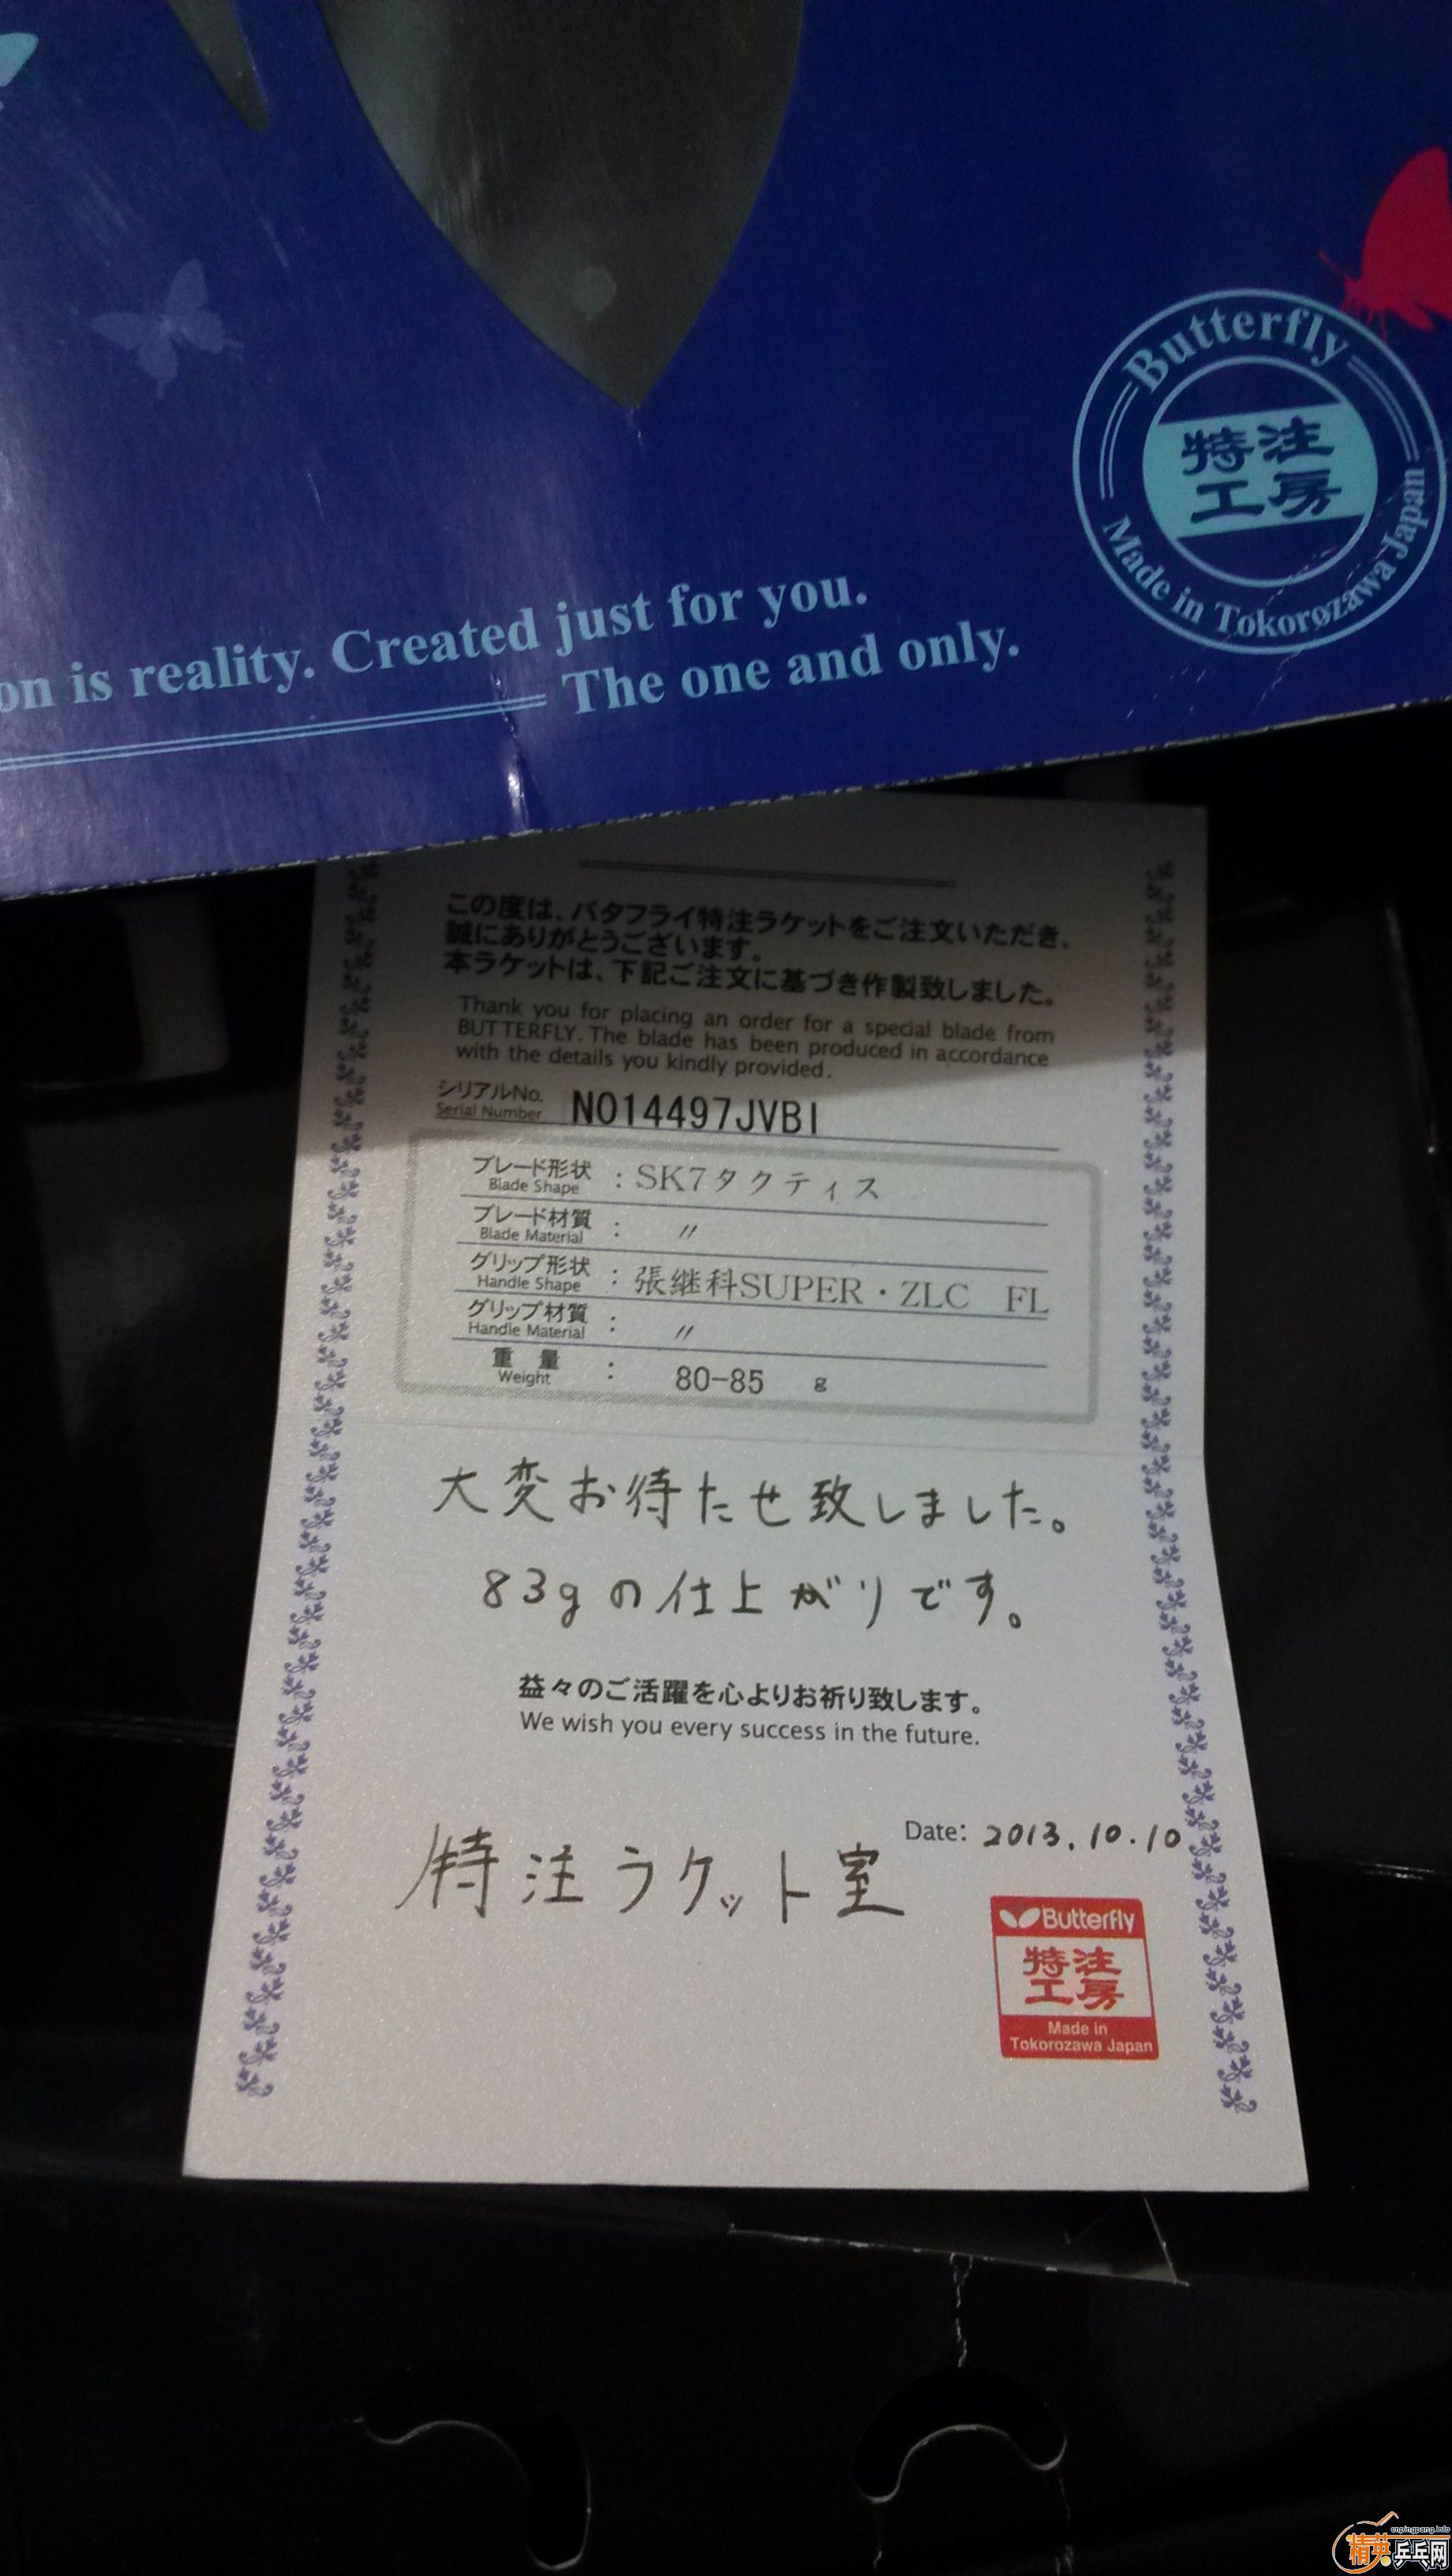 Butterfly
特注
工房
Made in Tokorozawa Japan
on is reality. Created just for you.
The one and only.
この度は、バタフライ特注ラケットをご注文いただき、
誠にありがとうございます。
本ラケットは、下記ご注文に基づき作製致しました。
Thank you for placing an order for a special blade from
BUTTERFLY. The blade has been produced in accordance
with the details you kindly provided.
シリアルNo.
Serial Number
NO14497JVBI
ブレード形状
Blade Shape
: SK7タクティス
ブレード材質
Blade Material
: 〃
グリップ形状
Handle Shape
: 張継科SUPER・ZLC FL
グリップ材質
Handle Material
: 〃
重 量
Weight
: 80-85 g
大変お待たせ致しました。
83gの仕上がりです。
益々のご活躍を心よりお祈り致します。
We wish you every success in the future.
Date: 2013.10.10
特注ラケット室
Butterfly
特注
工房
Made in
Tokorozawa Japan
cnpingpang.info
精英乒乓网